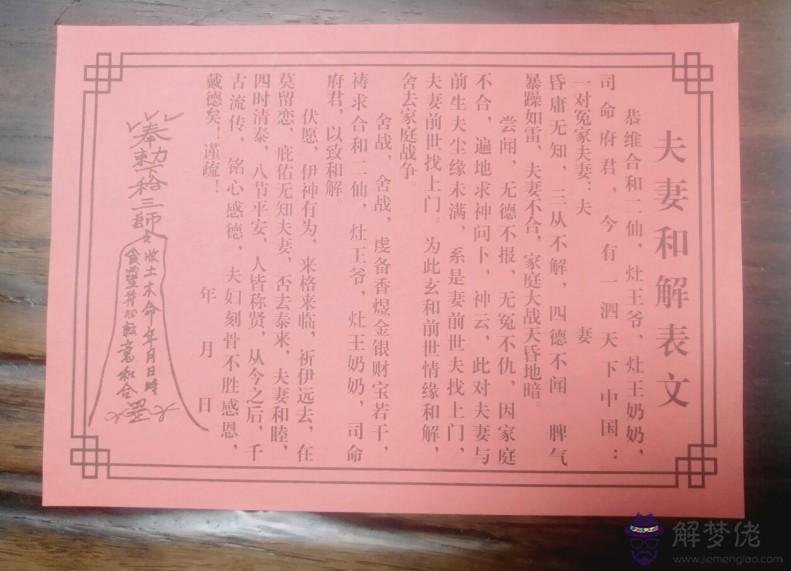 夫妻和解表文
恭维合和二仙，灶王爷，灶王奶奶，
司命府君，今有一泗天下中国：
一对冤家夫妻：夫　妻
昏庸无知，三从不解，四德不闻。脾气
暴躁如雷，夫妻不合，家庭大战天昏地暗。
尝闻，无德不报，无冤不仇，因家庭
不合，遍地求神问卜，神云，此对夫妻与
前生夫尘缘未满，系是妻前世夫找上门，
夫妻前世找上门。为此玄和前世情缘和解，
舍去家庭战争。
舍战，舍战，虔备香煜金银财宝若干，
祷求合和二仙，灶王爷，灶王奶奶，司命
府君，以致和解。
伏愿，伊神有为，来格来临，祈伊远去，在
莫留恋，庇佑无知夫妻，否去泰来，夫妻和睦，
四时清泰，八节平安，人皆称贤，从今之后，千
古流传，铭心感德，夫妇刻骨不胜感恩，
戴德矣！谨疏！
年　月　日
奉勅
三師
收土木命　年月日時
和合
解梦佬
www.jiemenglao.com